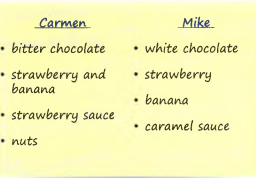 Carmen
• bitter chocolate
• strawberry and
banana
• strawberry sauce
• nuts
Mike
• white chocolate
• strawberry
• banana
• caramel sauce